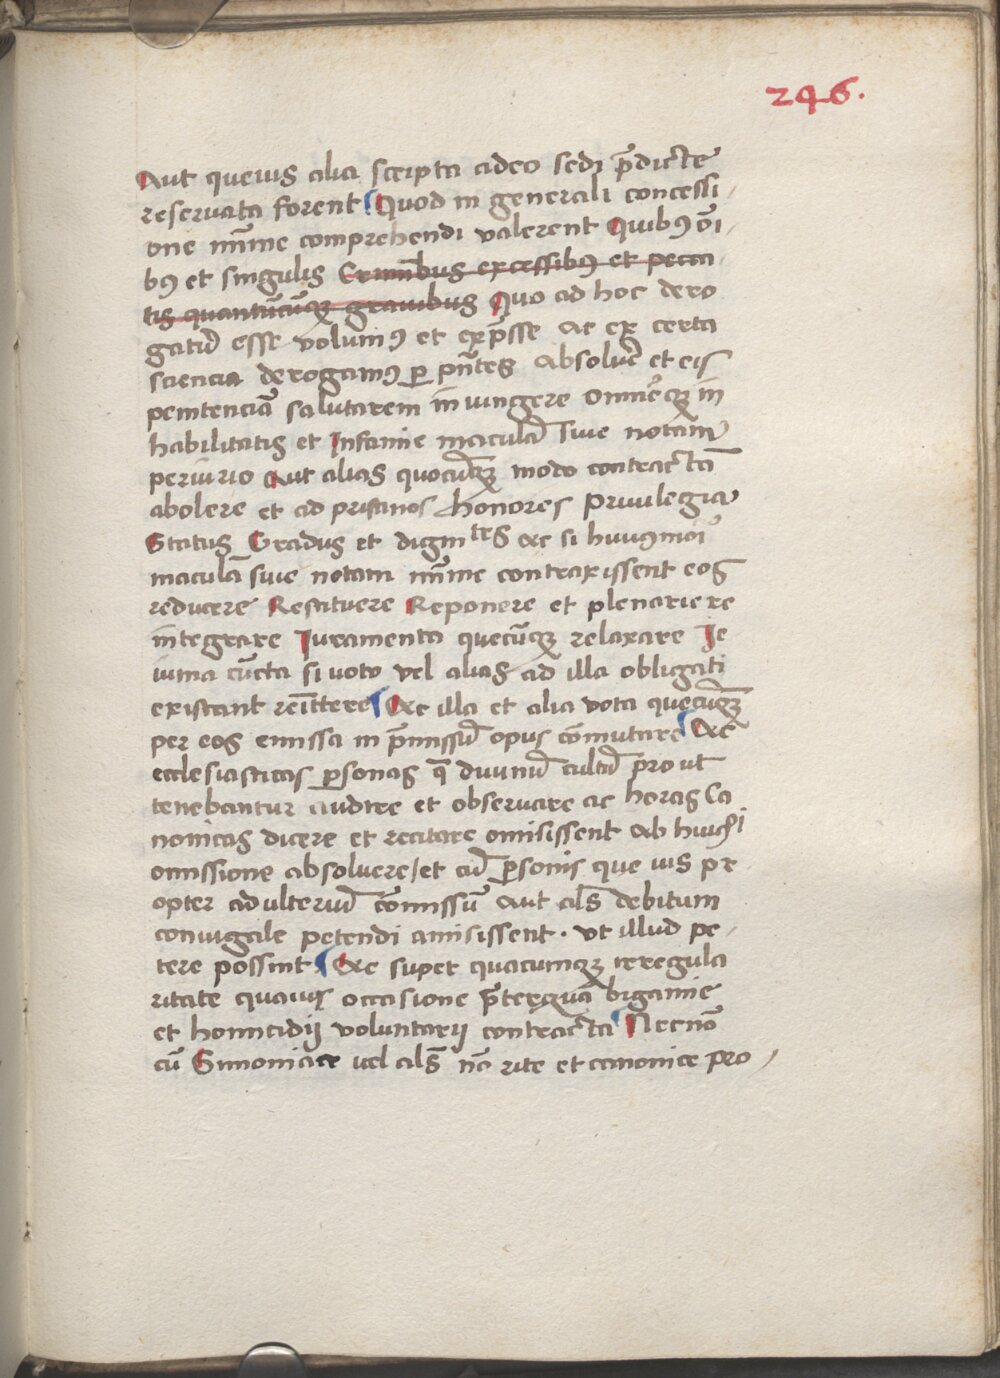 246.
Aut quevis alia scripta adeo sedi p̄dicte
reservata forent Quod in generali concessi
one mīme comprehendi valerent Quibꝯ oī
bꝯ et singulis Crīnibus excessibꝯ et pecca
tis quantūcūqꝫ gravibus Quo ad hoc dero
gatū esse volumꝯ et exp̄sse Ac ex certa
sciencia derogamꝯ ꝑ pn̄tes Absolvē et eis
penitenciā salutarem iniungere Omnēqꝫ in
habilitatis et Infamie maculā sive notam
periurio Aut alias quocūqꝫ modo contractā
abolere et ad pristinos honores Privilegia
Status Gradus et dignitēs ac si huiꝯmōi
maculā sive notam mīme contraxissent eos
reducere Restituere Reponere et plenarie re
integrare Iuramenta quecūqꝫ relaxare Ie
iunia cūcta si voto vel alias ad illa obligati
existant reīttere Ac illa et alia vota quecūqꝫ
per eos emissa in p̄missū opus cōmutare Ac
ecclesiasticas ꝑsonas q̄ divinū cultū prout
tenebantur audire et observare ac horas Ca
nonicas dicere et recitare omisissent Ab huiꝯi
omissione absolvere/et cū ꝑsonis que ius pr
opter adulteriū cōmissū Aut al̄s debitum
coniugale petendi amisissent. Ut illud pe
tere possint Ac super quacumqꝫ irregula
ritate quavis occasione p̄terquā bigamie
et homicidij voluntarij contracta Necnō
cū Simoniace vel al̄s nō rite et canonice pro